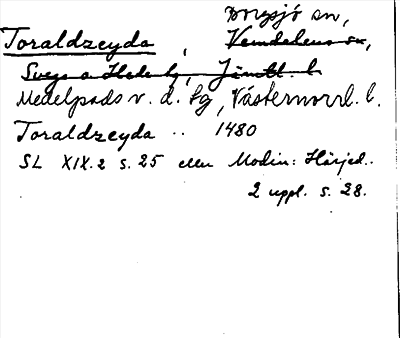 Borgsjö sn,
Toraldzeyda, Vemdalens sn,
Svegs o Hede tg, Jämtl. l.
Medelpads v. d. tg, Västernorrl. l.
Toraldzeyda .. 1480
SL XIX.2 s. 25 eller Modin: Härjed..
2 uppl. s. 28.